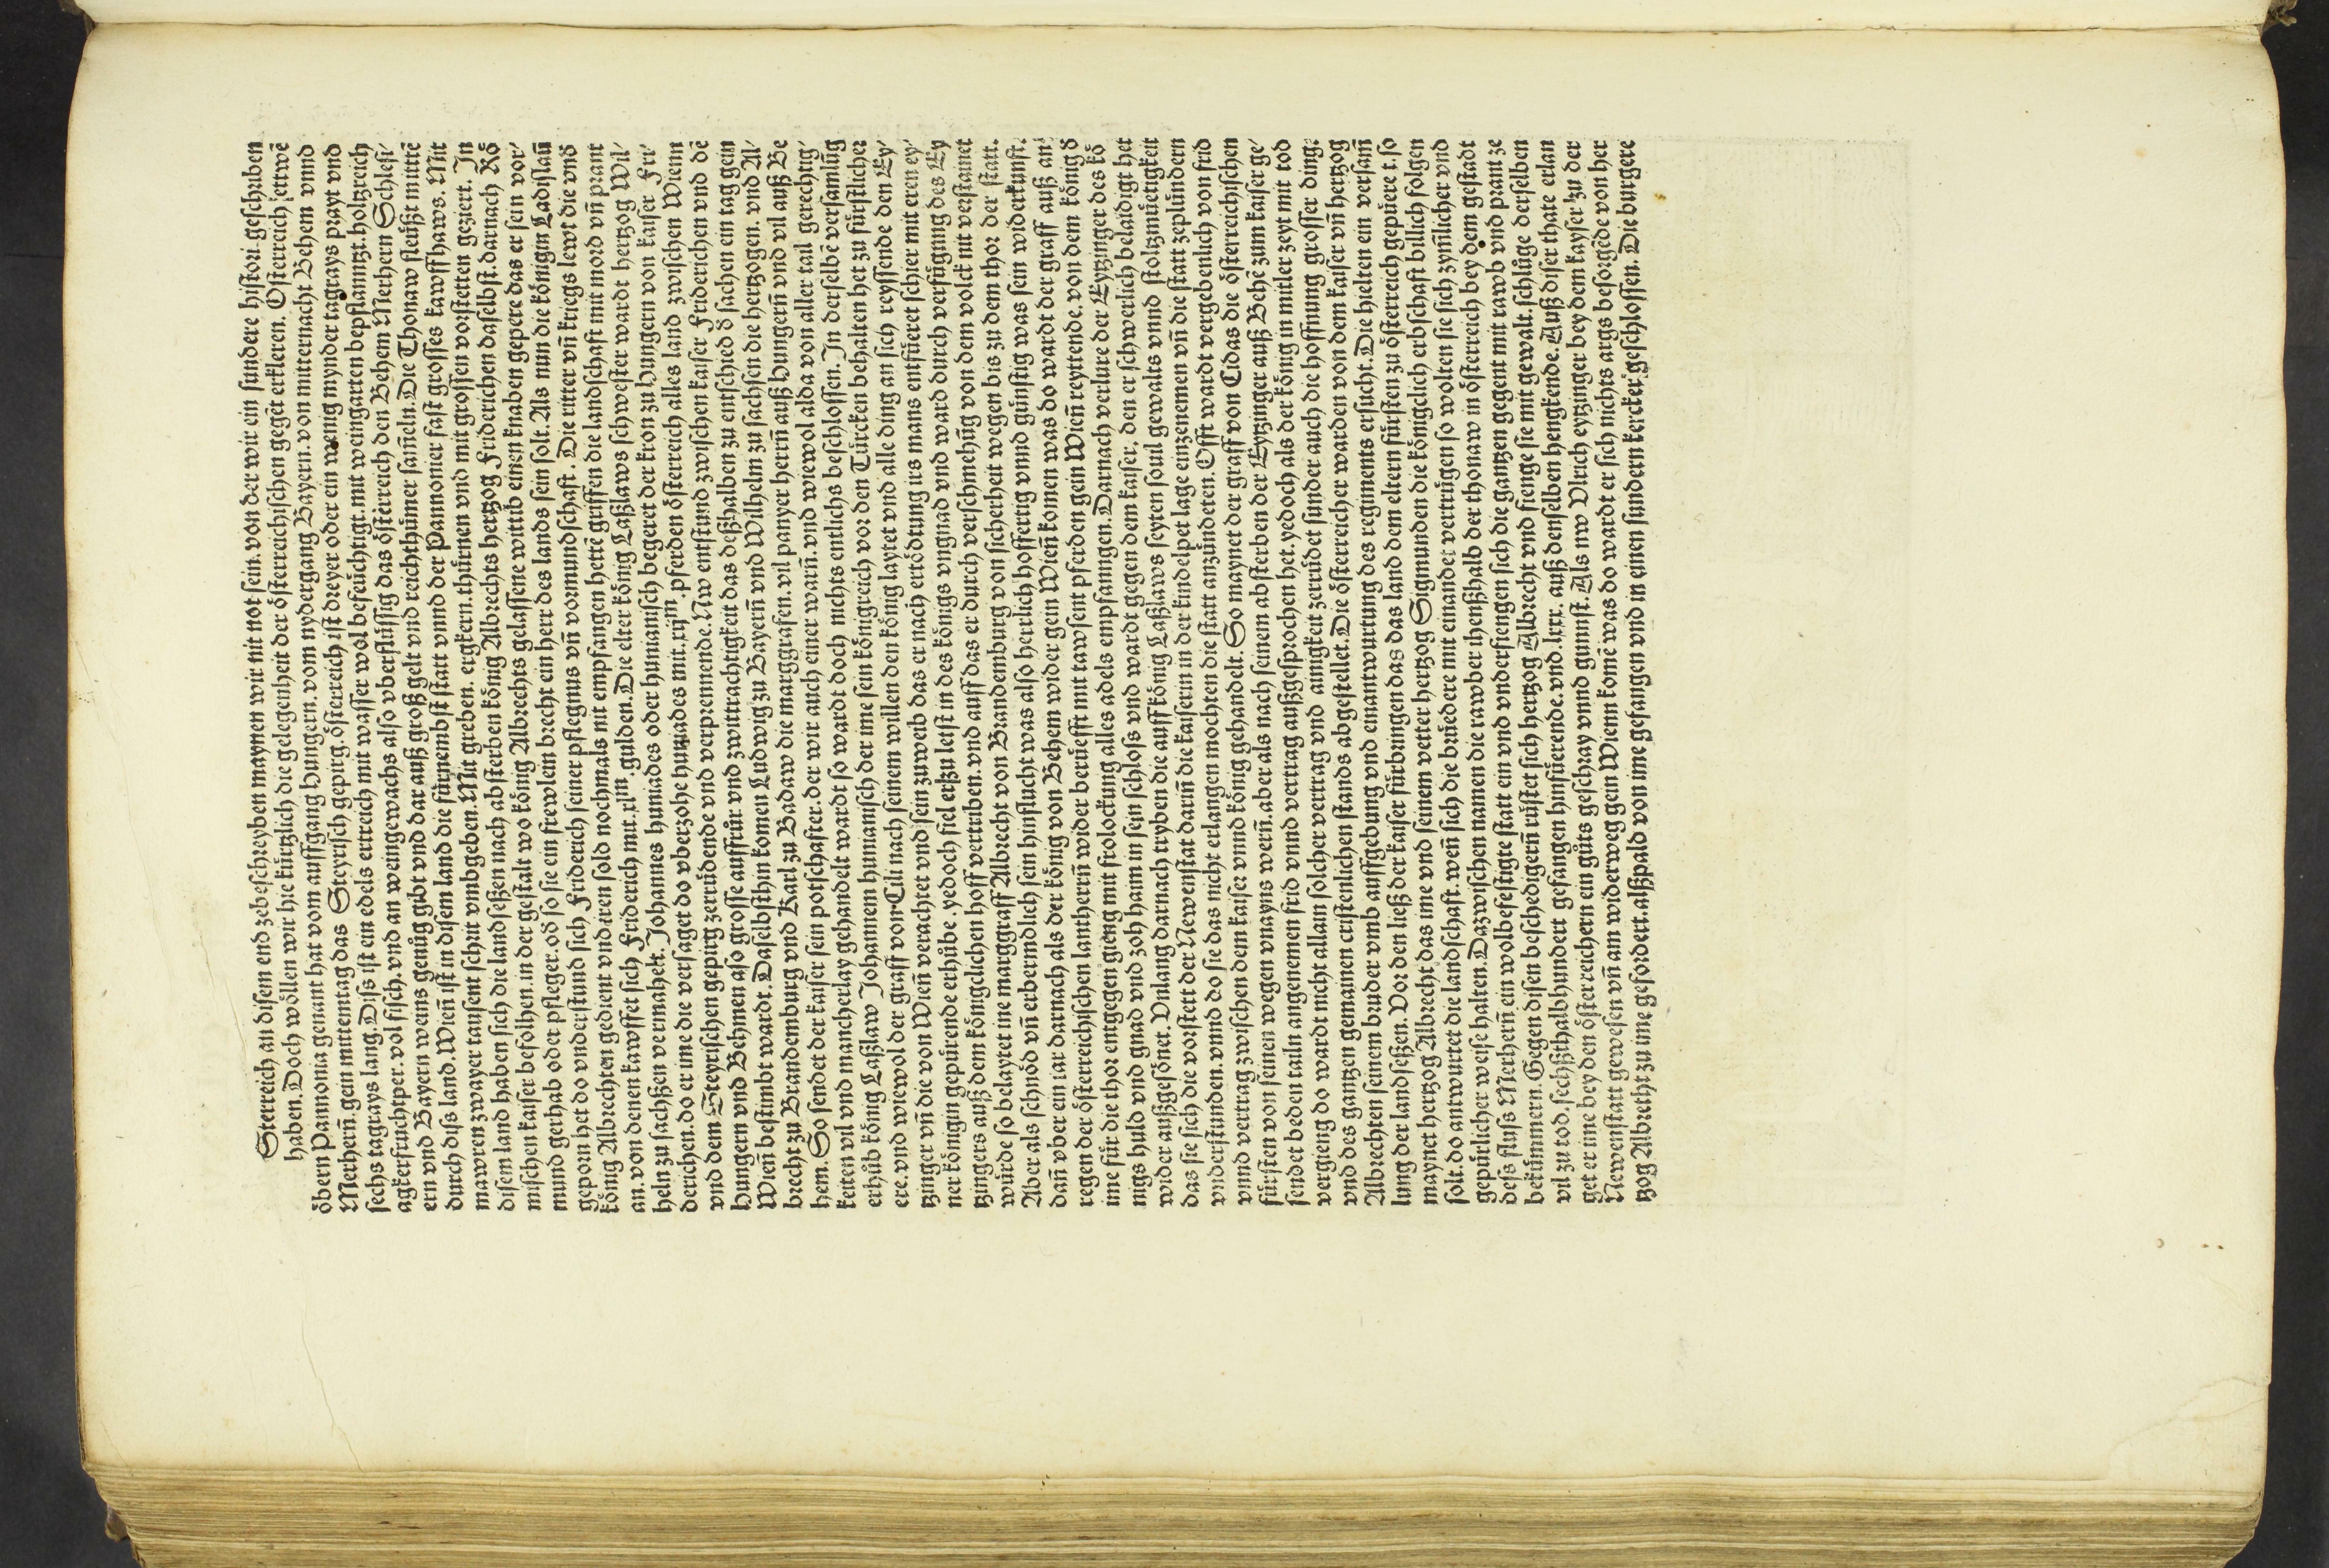 Sterreich an disem end zebeschreyben maynen wir nit not sein. von der wir ein sundere histori geschriben
haben. Doch wöllen wir hie kürtzlich die gelegenheit der österreichischen gegēt erkleren. Osterreich ettwē
öbern Pannonia genannt hat vom auffgang Hungern. vom nydergang Bayern. von mitternacht Behem vnnd
Merhern̄. gein mittentag das Steyrisch gepirg. österreich ist dreyer oder ein wenig mynder tagrays prayt vnd
sechs tagrays lang. Diss ist ein edels ertreich mit wasser wol befeüchtigt. mit weingarten bepflanntzt. holtzreich
agkerfruchtper. vol fisch. vnd an weingewachs also vberflüssig das österreich den Behem Merhern Schlesi/
ern vnd Bayern weins genůg gibt vnd dar auß groß gelt vnd reichthůmer sam̄eln. Die Thonaw fleüßt mittē
durch diss land. Wien̄ ist in disem land die fürnembst statt vnnd der Pannonier fast grosses kawffhaws. Mit
mawren zwayer tausent schůt vmbgeben. Mit greben. ergkern. thürnen vnd mit grossen vorstetten geziert. In
disem land haben sich die landseßen nach absterben könig Albrechts hertzog Friderichen daselbst. darnach Rö
mischen kaiser befolhen. in der gestalt wo könig Albrechts gelassene wittib einen knaben gepere das er sein vor/
mund gerhab oder pfleger. od̄ so sie ein frewlein brecht ein herr des lands sein solt. Als nun die königin Ladislaū
geporn het do vnderstund sich Friderich seiner pflegnus vn̄ vormundschaft. Die ritter vn̄ kriegs lewt die vnd̄
könig Albrechten gedient vnd iren sold nochmals nit empfangen hettē griffen die landschaft mit mord vn̄ prant
an. von denen kawffet sich Friderich mit .xlᵐ. gulden. Die elter könig Laßlaws schwester wardt hertzog Wil/
heln zu sachßen vermahelt. Johannes huniades oder humanisch begeret der kron zu Hungern von kaiser Fri/
derichen. do er ime die versaget do vberzohe huniades mit .xijᵐ. pferden österreich alles land zwischen Wienn
vnd dem Steyrischen gepirg zerrüdende vnd verprennende. Nw entstund zwischen kaiser Friderichen vnd dē
Hungern vnd Behmen aso grosse auffrůr vnd zwittrachtigkeit das deßhalben zu entschied d̄ sachen ein tag gein
Wien̄ bestimbt wardt. Daselbsthin komen Ludwig zu Bayern̄ vnd Wilhelm zu sachsen die hertzogen. vnd Al/
brecht zu Brandemburg vnd Karl zu Badaw die marggrafen. vil panyer herrn̄ auß Hungern̄ vnd vil auß Be
hem. So sendet der kaiser sein potschafter. der wir auch einer warn̄. vnd wiewol alda von aller tail gerechtig/
keiten vil vnd mancherlay gehandelt wardt so wardt doch nichts entlichs beschlossen. In derselbē versamlūg
erhůb könig Laßlaw Johannem humanisch der ime sein königreich vor den Türcken behalten het zu fürstlicher
ere. vnd wiewol der graff von Cili nach seinem willen den könig laytet vnd alle ding an sich reyssende den Ey/
tzinger vn̄ die von Wien̄ verachtet vnd sein zuweib das er nach ertödtung irs mans entfüeret schier mit eren ey/
ner königin gepürende erhübe. yedoch fiel erßu letst in des königs vngnad vnd ward durch verfügung des Ey
tzingers auß dem königclichen hoff vertriben. vnd auff das er durch verschmehūg von dem volck nit verstainet
würde so belaytet ine marggraff Albrecht von Brandemburg von sicherheit wegen bis zu dem thor der statt.
Aber als schnöd vn̄ erbermdlich sein hinflucht was also herrlich hoffertig vnnd günstig was sein widerkunft.
dan̄ vber ein iar darnach als der könig von Behem wider gein Wien̄ komen was do wardt der graff auß an/
regen der österreichischen lantherrn̄ wider berüefft mit tawsent pferden gein Wien̄ reytende. von dem könig d̄
ime für die thor entgegen gieng mit frolockung alles adels empfanngen. Darnach verlure der Eytzinger des kö
nigs huld vnd gnad vnd zoh haim in sein schloss vnd wardt gegen dem kaiser. den er schwerlich belaidigt het
wider außgesönet. Vnlang darnach tryben die auff könig Laßlaws seyten souil gewalts vnnd stoltzmüetigkeit
das sie sich die vorstett der Newenstat darin̄ die kaiserin in der kindelpet lage einzenemen vn̄ die statt zeplündern
vnderstunden. vnnd do sie das nicht erlangen mochten die statt anzündeten. Offt wardt vergebenlich von frid
vnnd vertrag zwischen dem kaiser vnnd könig gehandelt. So maynet der graff von Cidas die österreichischen
fürsten von seinen wegen vnayns wern̄. aber als nach seinem absterben der Eytzinger auß Behē zum kaiser ge/
sendet beden tailn angenemen frid vnnd vertrag außgesprochen het. yedoch als der könig in mitler zeyt mit tod
vergieng do wardt nicht allain solcher vertrag vnd ainigkeit zerrüdet sunder auch die hoffnung grosser ding.
vnd des gantzen gemainen cristenlichen stands abgestellet. Die österreicher warden von dem kaiser vn̄ hertzog
Albrechten seinem bruder vmb auffgebung vnd einantwurtung des regiments ersucht. Die hielten ein versam̄
lung der landseßen. Vor den ließ der kaiser fürbringen das das land dem eltern fürsten zu österreich gepüere ꝛc. so
maynet hertzog Albrecht das ime vnd seinem vetter hertzog Sigmunden die königclich erbschaft billich folgen
solt. do antwurtet die landschaft. wen̄ sich die brüedere mit einander vertrügen so wolten sie sich zym̄licher vnd
gepürlicher weise halten. Dazwischen namen die rawber ihenßhalb der thonaw in österreich bey dem gestadt
dess fluss Merhern̄ ein wolbefestigte statt ein vnd vnderfiengen sich die gantzen gegent mit rawb vnd prant ze
bekümmern. Gegen disen beschedigern̄ rüstet sich hertzog Albrecht vnd fienge sie mit gewalt. schlůge derselben
vil zu tod. sechßthalbhundert gefangen hinfüerende. vnd .lxxx. auß denselben hengkende. Auß diser thate erlan
get er ime bey den österreichern ein gůts geschray vnnd gunnst. Als nw Vlrich eytzinger bey dem kayser zu der
Newenstatt gewesen vn̄ am widerweg gein Wienn komē was do wardt er sich nichts args besorgēde von her
tzog Albrecht zu ime gefordert. alßpald von ime gefangen vnd in einen sundern kercker geschlossen. Die burgere